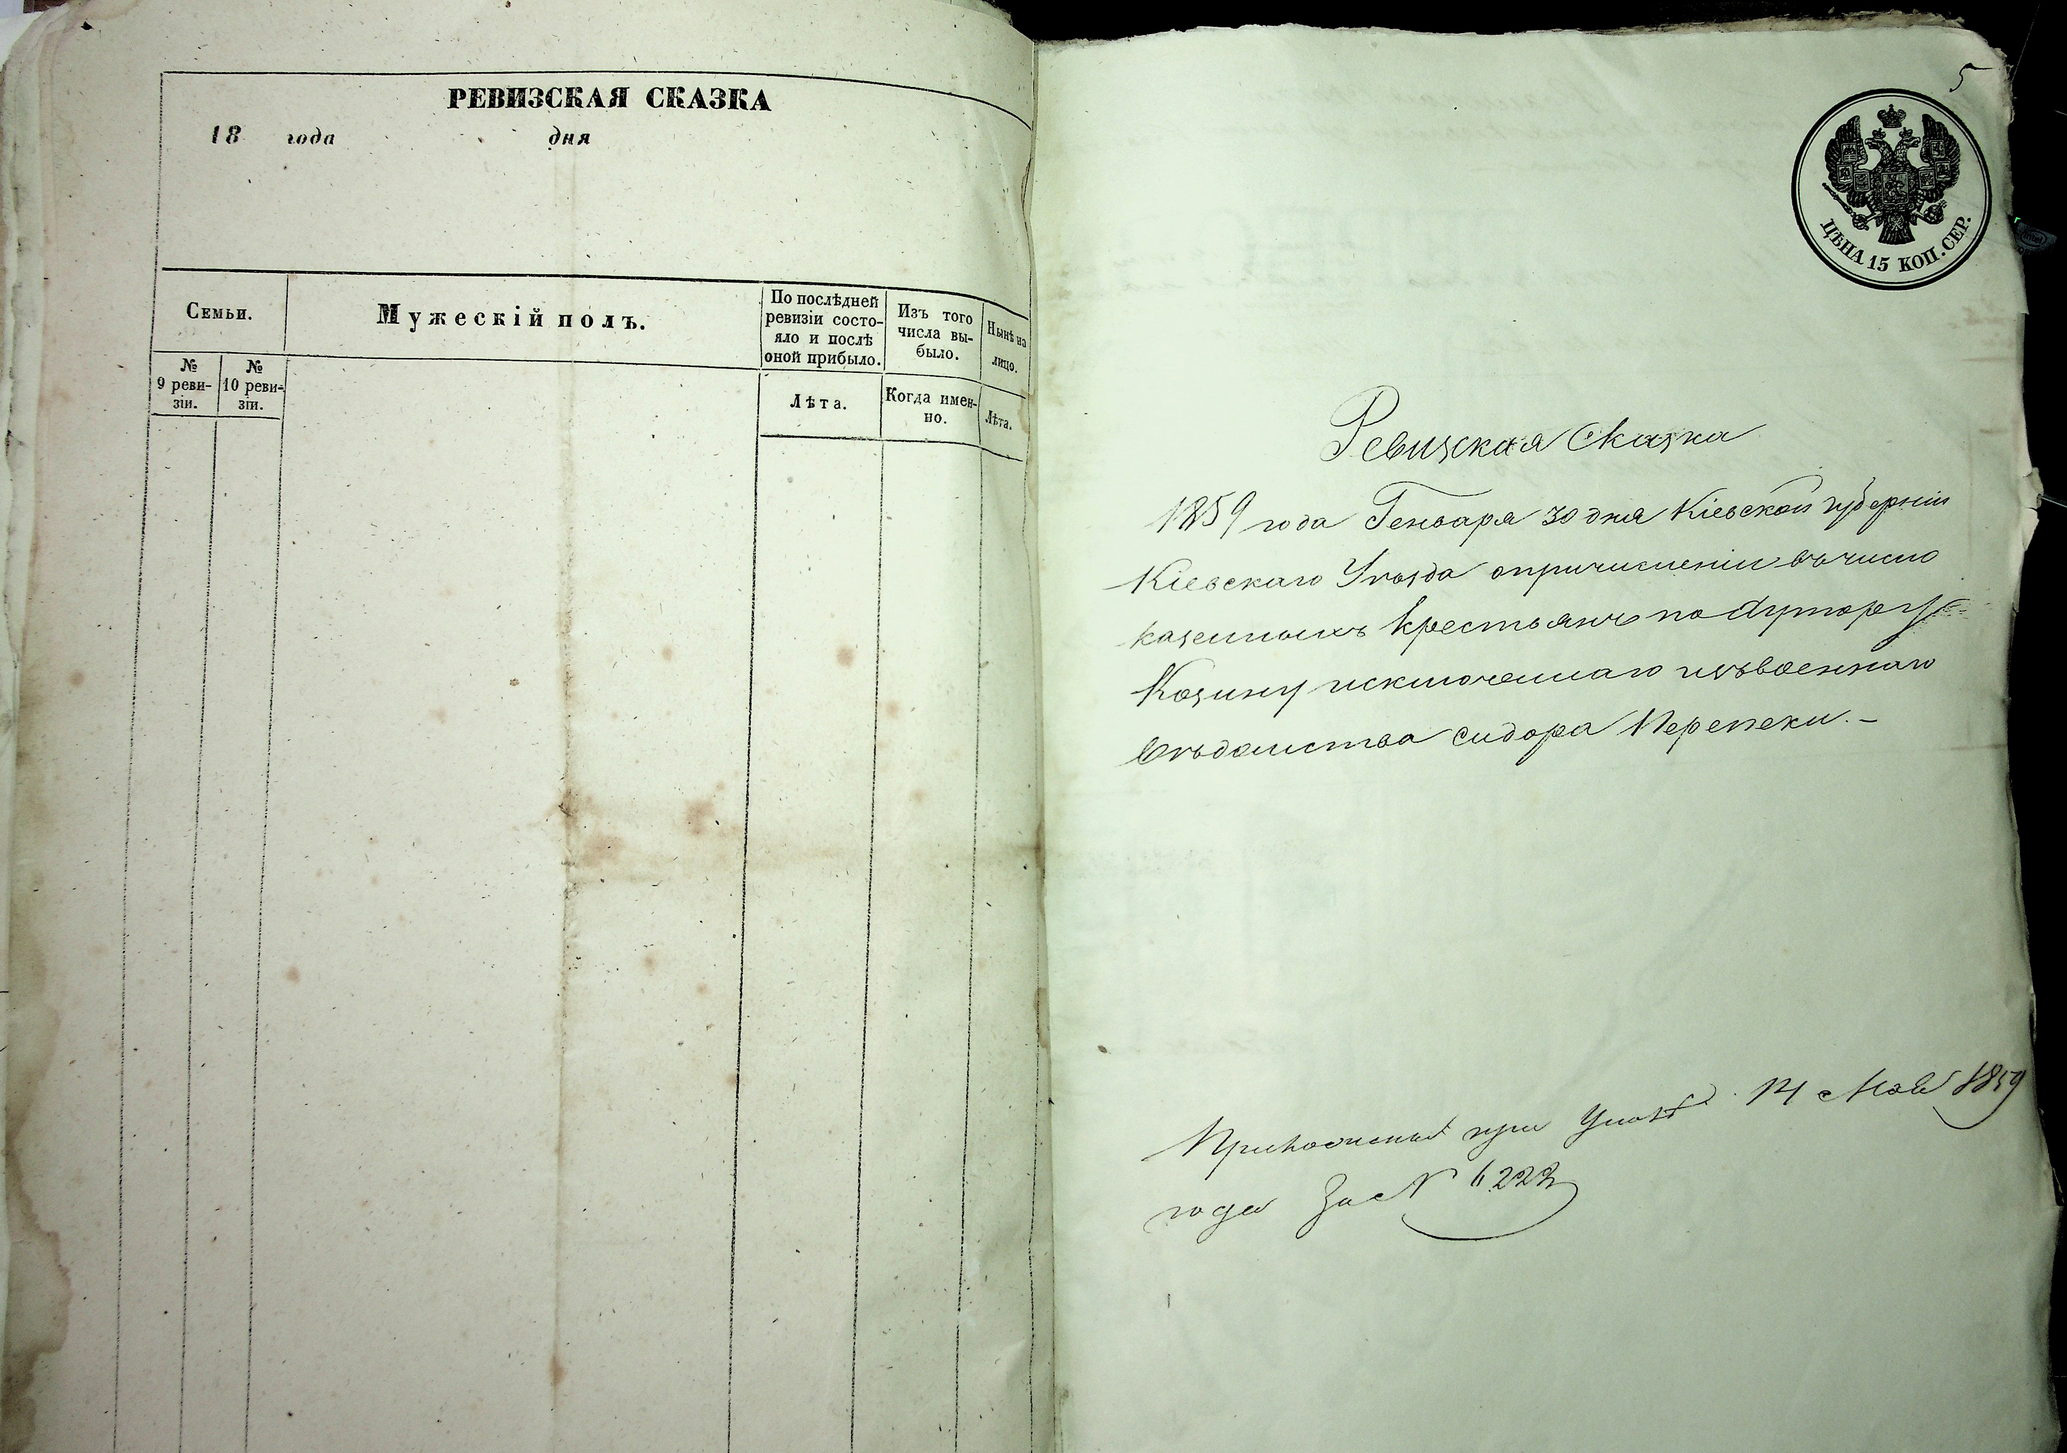 РЕВИЗСКАЯ СКАЗКА
18 года дня
Семьи.
Мужескій полъ.
По послѣдней
ревизіи состо-
яло и послѣ
оной прибыло.
Изъ того
числа вы-
было.
Нынѣ на
лицо.
№
9 реви-
зіи.
№
10 реви-
зіи.
Лѣта.
Когда имен-
но.
Лѣта.
5
ЦѢНА 15 КОП. СЕР.
Ревизская Сказка
1859 года Генваря 30 дня Кіевской губерніи
Кіевскаго Уѣзда о причисленіи въ число
казенныхъ крестьянъ по Хутору
Козину исключеннаго изъ военнаго
вѣдомства Сидора Перепеки.–
при 14 1859
года За №